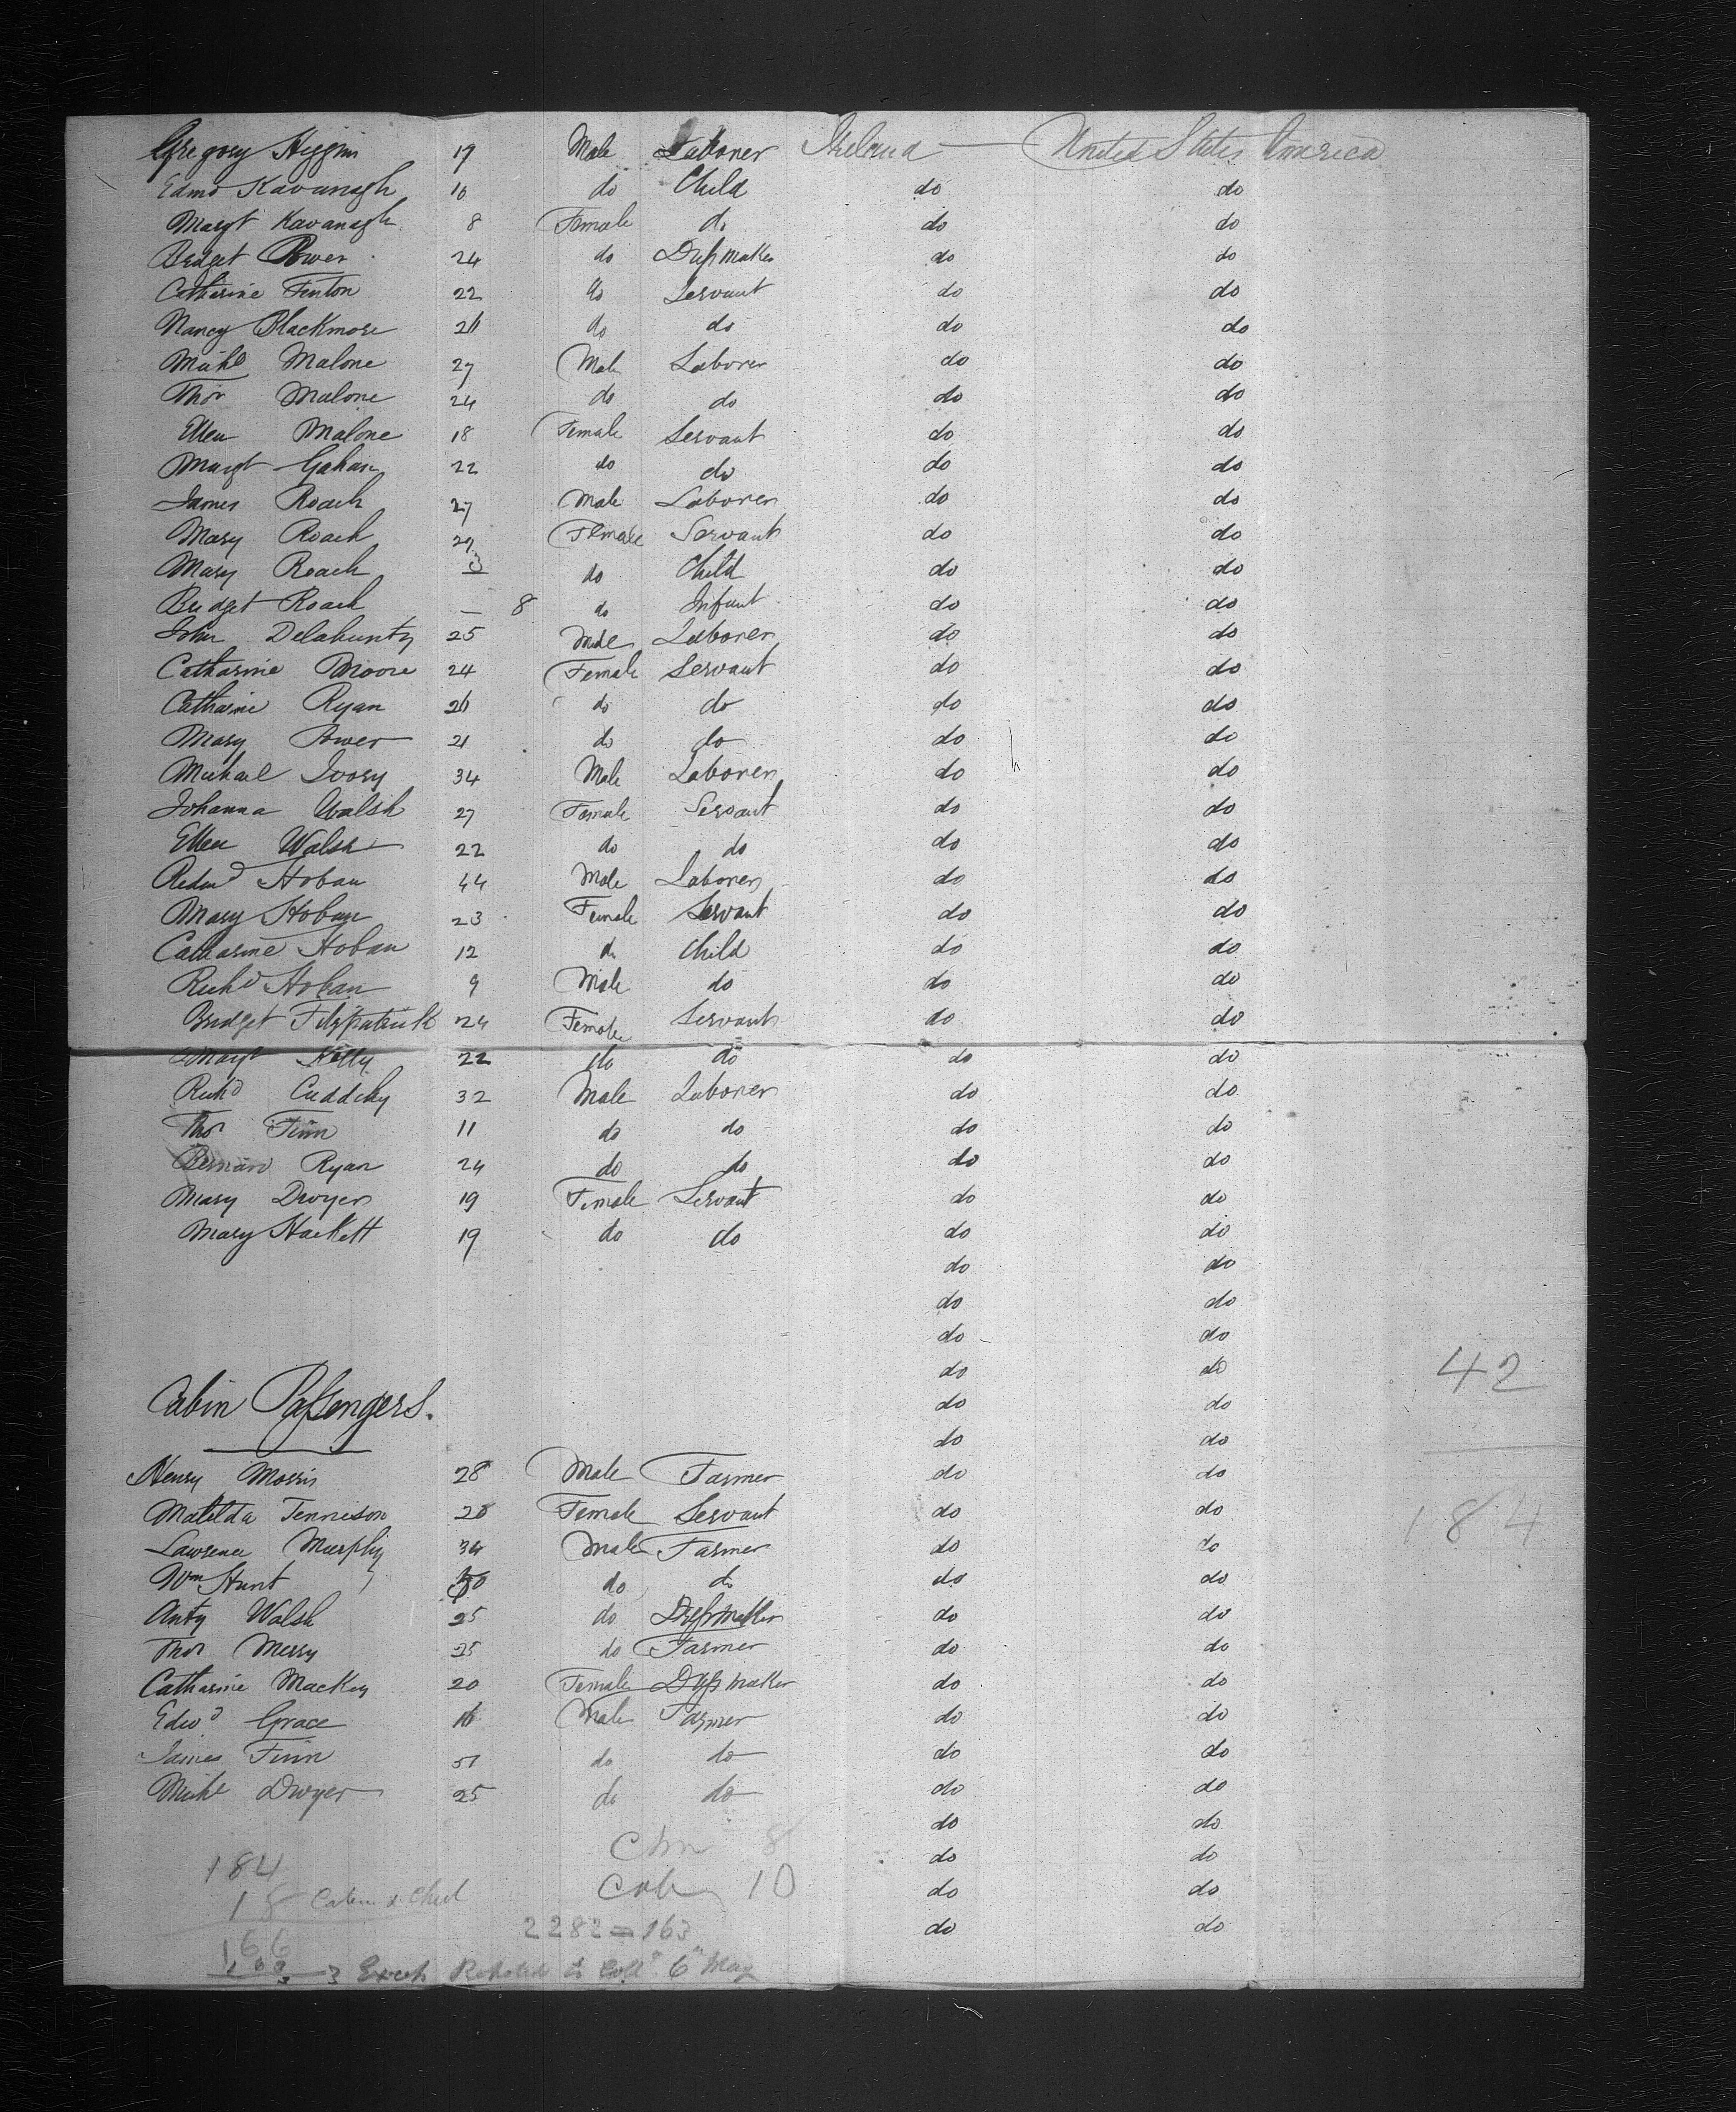 Gregory Higgins 19 Male Laborer Ireland — United States America
Edmd Kavanagh 10 do Child do do
Margt Kavanagh 8 Female do do do
Bridget Power 24 do Dressmaker do do
Catharine Fenton 22 do Servant do do
Nancy Blackmore 26 do do do do
Michl Malone 27 Male Laborer do do
Thos Malone 24 do do do do
Ellen Malone 18 Female Servant do do
Margt Gahan 22 do do do do
James Roach 27 Male Laborer do do
Mary Roach 29 Female Servant do do
Mary Roach 3 do Child do do
Bridget Roach — 8 do Infant do do
John Delahunty 25 Male Laborer do do
Catharine Moore 24 Female Servant do do
Catharine Ryan 26 do do do do
Mary Power 21 do do do do
Michael Ivory 34 Male Laborer do do
Johanna Walsh 27 Female Servant do do
Ellen Walsh 22 do do do do
Redmd Hoban 44 Male Laborer do do
Mary Hoban 23 Female Servant do do
Catharine Hoban 12 do Child do do
Richd Hoban 9 Male do do do
Bridget Fitzpatrick 24 Female Servant do do
Margt Kelly 22 do do do do
Richd Cuddehy 32 Male Laborer do do
Thos Finn 11 do do do do
Bernard Ryan 24 do do do do
Mary Dwyer 19 Female Servant do do
Mary Hackett 19 do do do do
do do
do do
do do
do do 42
Cabin Passengers. do do
do do
Henry Morris 28 Male Farmer do do
Matilda Tennison 28 Female Servant do do 184
Lawrence Murphy 34 Male Farmer do do
Wm Hunt do do do do
Anty Walsh 25 do Dressmaker do do
Thos Merry 25 do Farmer do do
Catharine Mackey 20 Female Dressmaker do do
Edwd Grace 16 Male Farmer do do
James Finn 51 do do do do
Michl Dwyer 25 do do do do
do do
Chn 8
184 do do
18 Cabin & Chil Cab 10 do do
2282 = 163 do do
166
163
3 Excess Reported to Coll 6th May